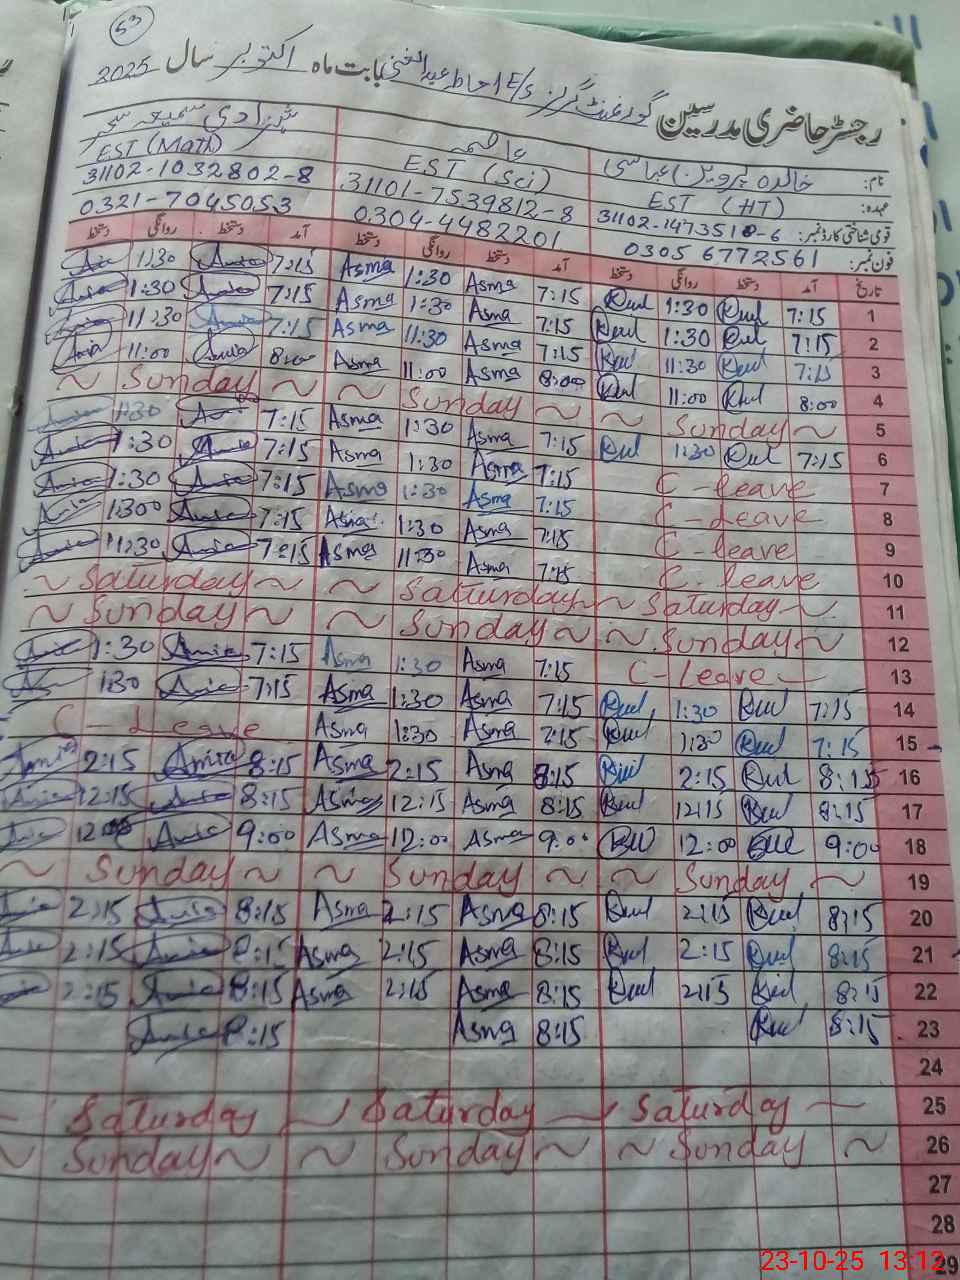 53
رجسٹر حاضری مدرسین گورنمنٹ گرلز E/S احاطہ عبدالغنی بابت ماہ اکتوبر سال 2025
نام: خالدہ پروین عباسی عاصمہ شہزادی سمیعہ سحر
عہدہ: EST (HT) EST (Sci) EST (Math)
قومی شناختی کارڈ نمبر: 31102-1473510-6 31101-7539812-8 31102-1032802-8
فون نمبر: 0305 6772561 0304-4482201 0321-7045053
تاریخ آمد دستخط روانگی دستخط آمد دستخط روانگی دستخط آمد دستخط روانگی دستخط
1 7:15 1:30 7:15 Asma 1:30 Asma 7:15 1:30
2 7:15 1:30 7:15 Asma 1:30 Asma 7:15 1:30
3 7:15 11:30 7:15 Asma 11:30 Asma 7:15 11:30
4 8:00 11:00 8:00 Asma 11:00 Asma 8:00 11:00
5 ~ Sunday ~ ~ Sunday ~ ~ Sunday ~
6 7:15 1:30 7:15 Asma 1:30 Asma 7:15 1:30
7 C-leave 7:15 Asma 1:30 Asma 7:15 1:30
8 C-Leave 7:15 Asma 1:30 Asma 7:15 1:30
9 C-leave 7:15 Asma 1:30 Asma 7:15 1:300
10 C-leave 7:15 Asma 11:30 Asma 7:15 11:30
11 ~ Saturday ~ ~ Saturday ~ ~ Saturday ~
12 ~ Sunday ~ ~ Sunday ~ ~ Sunday ~
13 C-Leave 7:15 Asma 1:30 Asma 7:15 1:30
14 7:15 1:30 7:15 Asma 1:30 Asma 7:15 1:30
15 7:15 1:30 7:15 Asma 1:30 Asma C-Leave
16 8:15 2:15 8:15 Asma 2:15 Asma 8:15 2:15
17 8:15 12:15 8:15 Asma 12:15 Asma 8:15 12:15
18 9:00 12:00 9:00 Asma 12:00 Asma 9:00 12:00
19 ~ Sunday ~ ~ Sunday ~ ~ Sunday ~
20 8:15 2:15 8:15 Asma 2:15 Asma 8:15 2:15
21 8:15 2:15 8:15 Asma 2:15 Asma 8:15 2:15
22 8:15 2:15 8:15 Asma 2:15 Asma 8:15 2:15
23 8:15 8:15 Asma 8:15
24
25 Saturday ~ Saturday ~ Saturday
26 ~ Sunday ~ ~ Sunday ~ ~ Sunday ~
27
28
29
23-10-25 13:12